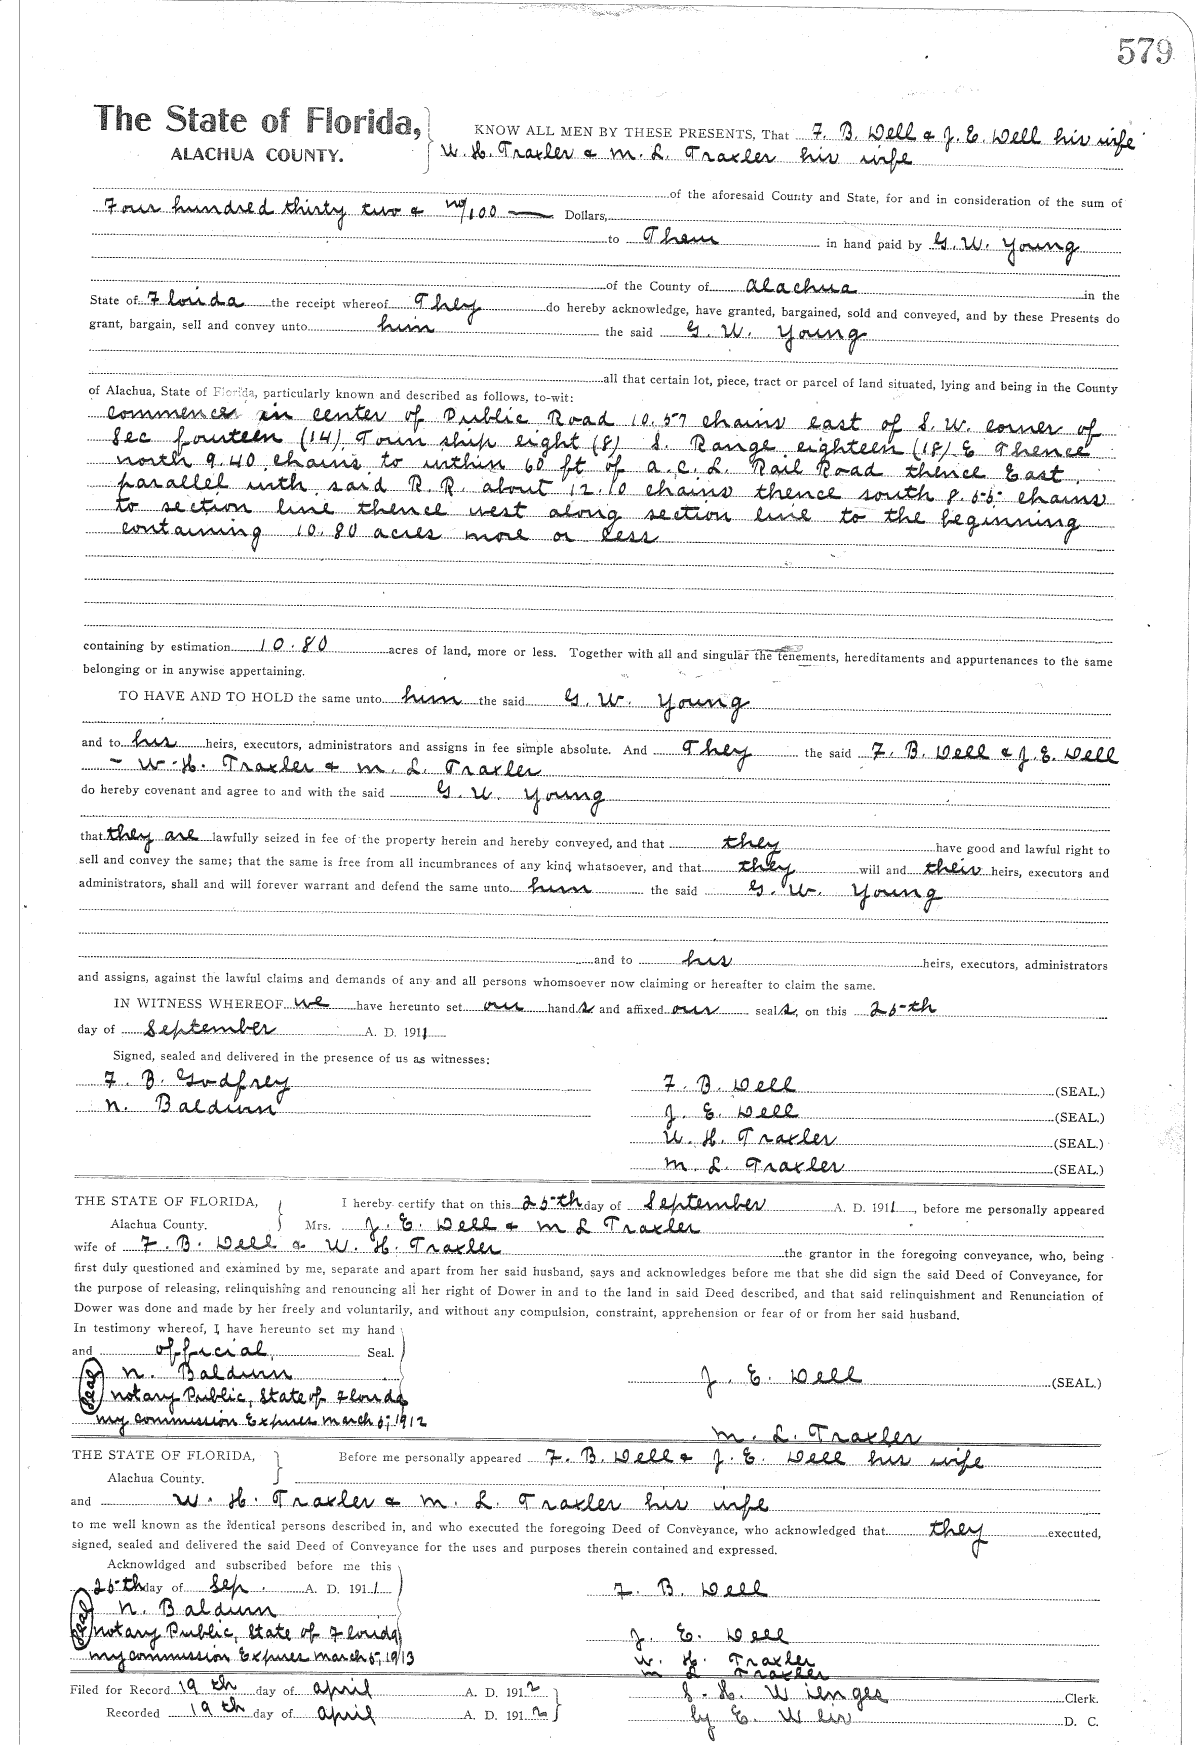 579
The State of Florida,
ALACHUA COUNTY.
KNOW ALL MEN BY THESE PRESENTS, That F. B. Dell & J. E. Dell his wife
W. H. Traxler & M. L. Traxler his wife
of the aforesaid County and State, for and in consideration of the sum of
Four hundred thirty two & no/100 Dollars,
to Them in hand paid by G. W. Young
of the County of Alachua in the
State of Florida the receipt whereof They do hereby acknowledge, have granted, bargained, sold and conveyed, and by these Presents do
grant, bargain, sell and convey unto him the said G. W. Young
all that certain lot, piece, tract or parcel of land situated, lying and being in the County
of Alachua, State of Florida, particularly known and described as follows, to-wit:
Commence in center of Public Road 10.57 chains east of S. W. corner of
Sec fourteen (14) Town ship eight (8) S. Range eighteen (18) E Thence
north 9.40 chains to within 60 ft of A. C. L. Rail Road thence East
parallel with said R. R. about 12.10 chains thence south 8.55 chains
to section line thence west along section line to the beginning
containing 10.80 acres more or less
containing by estimation 10.80 acres of land, more or less. Together with all and singular the tenements, hereditaments and appurtenances to the same
belonging or in anywise appertaining.
TO HAVE AND TO HOLD the same unto him the said G. W. Young
and to his heirs, executors, administrators and assigns in fee simple absolute. And They the said F. B. Dell & J. E. Dell
- W. H. Traxler & M. L. Traxler
do hereby covenant and agree to and with the said G. W. Young
that they are lawfully seized in fee of the property herein and hereby conveyed, and that they have good and lawful right to
sell and convey the same; that the same is free from all incumbrances of any kind whatsoever, and that they will and their heirs, executors and
administrators, shall and will forever warrant and defend the same unto him the said G. W. Young
and to his heirs, executors, administrators
and assigns, against the lawful claims and demands of any and all persons whomsoever now claiming or hereafter to claim the same.
IN WITNESS WHEREOF we have hereunto set our hands and affixed our seals, on this 25th
day of September A. D. 1911
Signed, sealed and delivered in the presence of us as witnesses:
F. B. Godfrey
N. Baldwin
F. B. Dell (SEAL.)
J. E. Dell (SEAL.)
W. H. Traxler (SEAL.)
M. L. Traxler (SEAL.)
THE STATE OF FLORIDA,
Alachua County.
I hereby certify that on this 25th day of September A. D. 1911, before me personally appeared
Mrs. J. E. Dell & M L Traxler
wife of F. B. Dell & W. H. Traxler the grantor in the foregoing conveyance, who, being
first duly questioned and examined by me, separate and apart from her said husband, says and acknowledges before me that she did sign the said Deed of Conveyance, for
the purpose of releasing, relinquishing and renouncing all her right of Dower in and to the land in said Deed described, and that said relinquishment and Renunciation of
Dower was done and made by her freely and voluntarily, and without any compulsion, constraint, apprehension or fear of or from her said husband.
In testimony whereof, I have hereunto set my hand
and official Seal.
Seal N. Baldwin
Notary Public, State of Florida
My commission Expires March 5, 1912
J. E. Dell (SEAL.)
M. L. Traxler
THE STATE OF FLORIDA,
Alachua County.
Before me personally appeared F. B. Dell & J. E. Dell his wife
and W. H. Traxler & M. L. Traxler his wife
to me well known as the identical persons described in, and who executed the foregoing Deed of Conveyance, who acknowledged that they executed,
signed, sealed and delivered the said Deed of Conveyance for the uses and purposes therein contained and expressed.
Acknowldged and subscribed before me this
25th day of Sep. A. D. 1911
Seal N. Baldwin
Notary Public, State of Florida
My commission Expires March 5, 1913
F. B. Dell
J. E. Dell
W. H. Traxler
M L Traxler
Filed for Record 19th day of April A. D. 1912
Recorded 19th day of April A. D. 1912
S. H. Wienges Clerk.
by E. D. C.